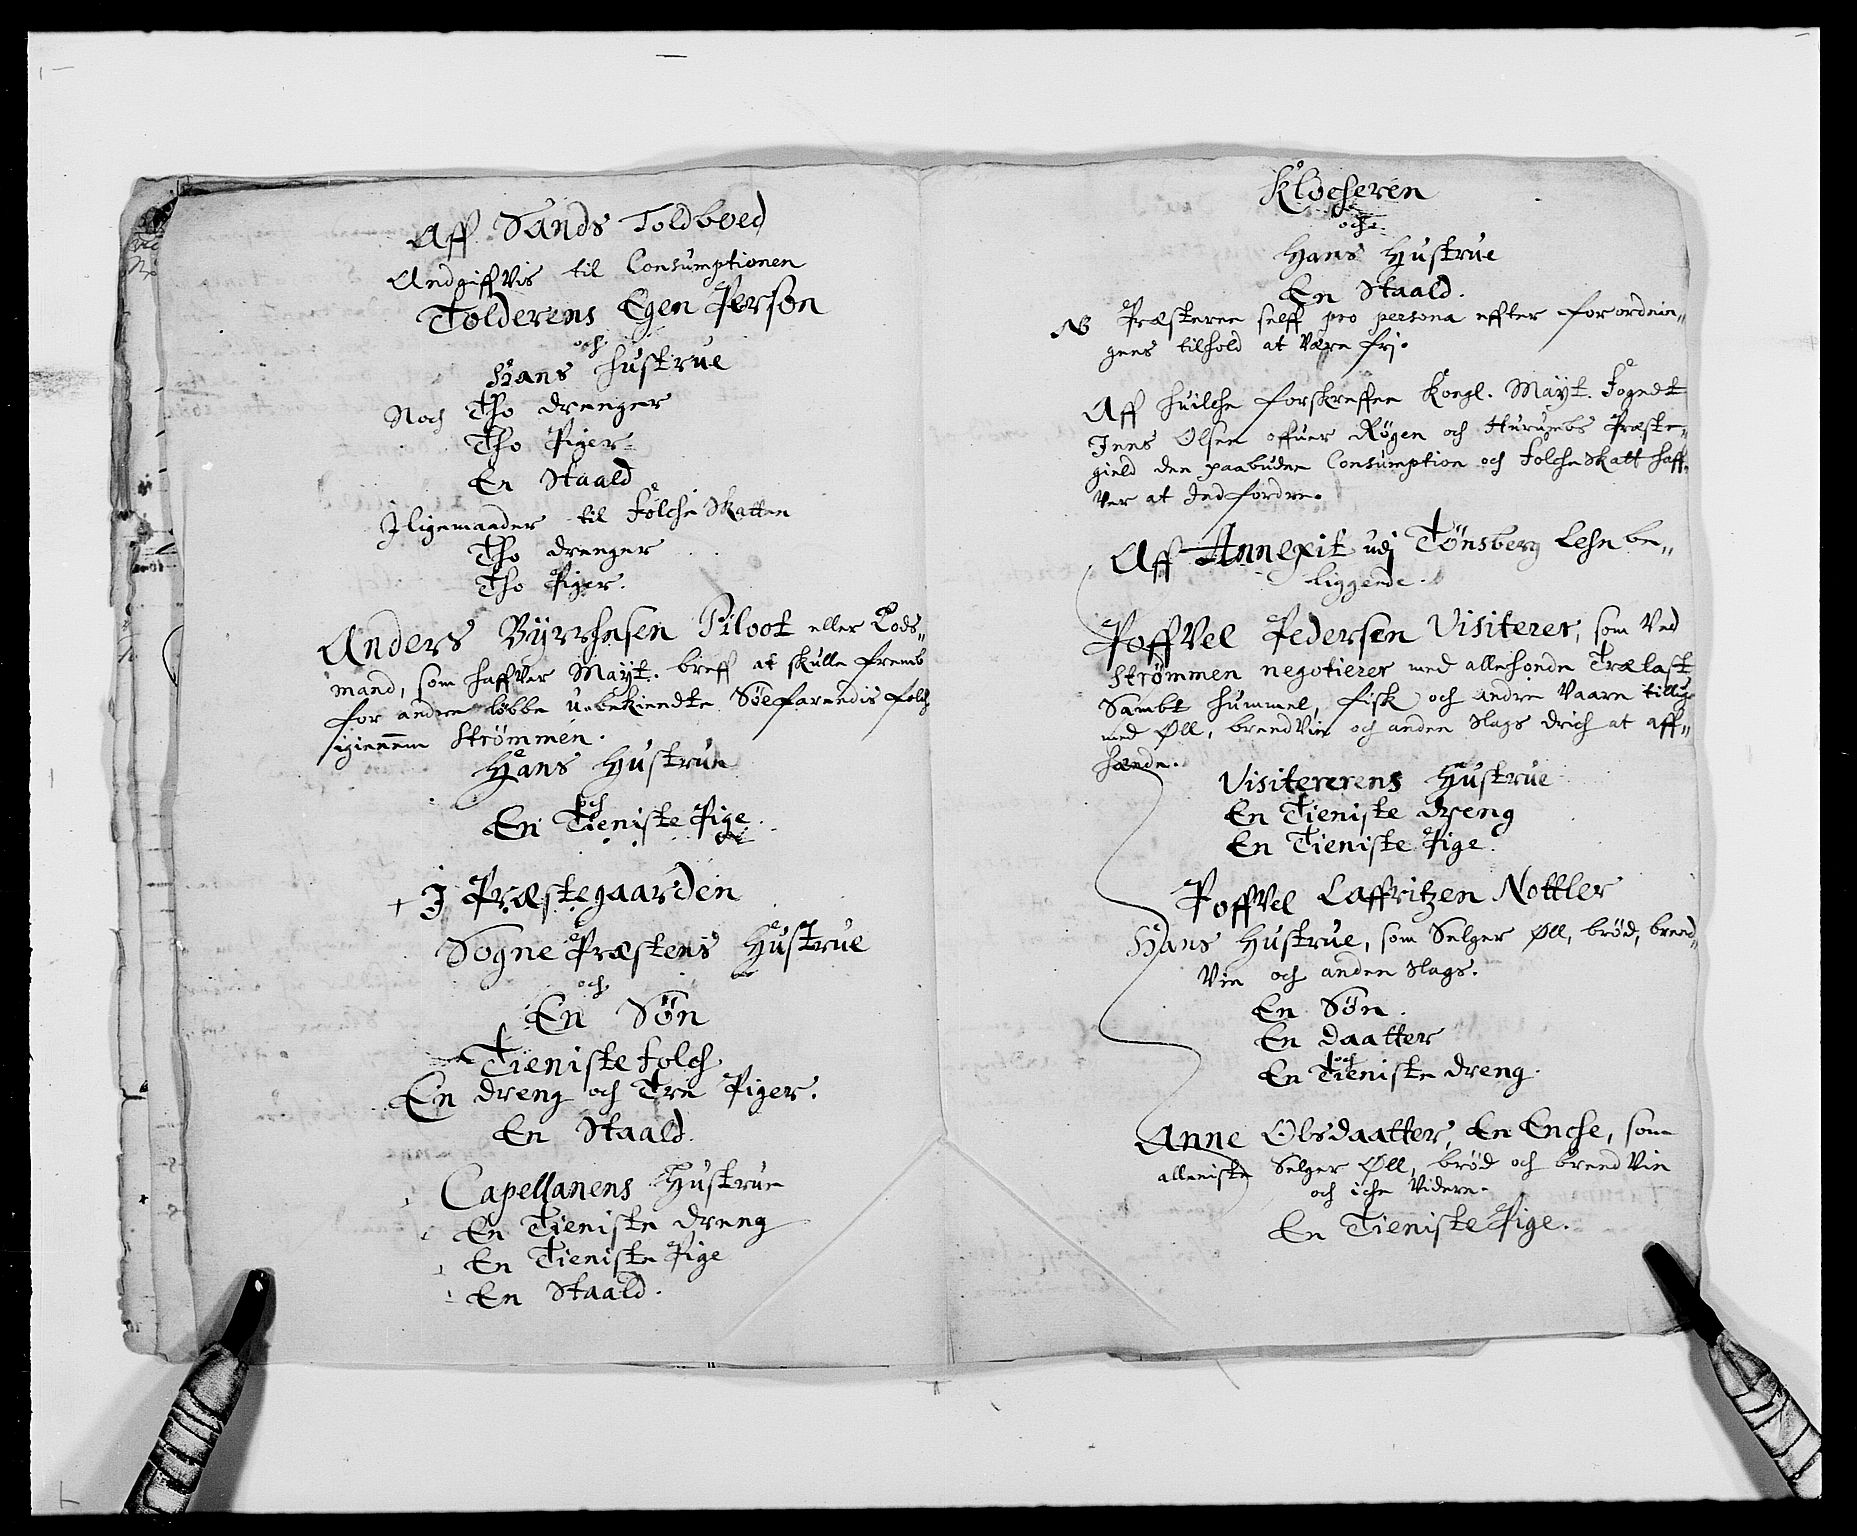 Aff Sands Toldboed
Andgiffvis til Consumptionen
Tolderens Egen Person
och
Hans Hustrue
Noch Tho drenger
Tho Piger
En Staald
Jligemaader til Folche Skatten
Tho drenger
Tho Piger.
Anders Piloot eller Lods-
mand, som haffver Mayt. breff at skulle fremb
for andre løbbe uebekiendte Søefarendis folch
igiennem Strømmen.
Hans Hustrue
och
En Tieniste Pige
+ J Præstegaarden
Sogne Præstens Hustrue
och
En Søn
Tieniste folch
En dreng och Tre Piger.
En Staald.
Capellanens Hustrue
En Tieniste dreng
En Tieniste Pige
En Staald.
Klocheren
och
Hans Hustrue
En Staald.
NB Præsterne self pro persona effter forordnin-
gens tilhold at være frj.
Aff huilche forskreffne Kongl. Mayt. Fogedt
Jens Olsen offuer Røgen och Hurumbs Præste-
gield den paabudne Consumption och Folche Skatt haff-
ver at Jndfordre.
Aff Annexit udj Tønsberg Lehn be-
liggende.
Poffvel Pedersen Visiterer, som ved
Strømmen negotierer med allehonde Trælast
Sambt hummel, fisk och andre Vaare tillige
med Øll, brendVin och anden Slags drich at aff-
hænde.
Visitererens Hustrue
En Tieniste dreng
En Tieniste Pige.
Poffvel Laffritzen Nottler
Hans Hustrue, som Selger Øll, brød, brend-
Vin och anden Slags.
En Søn.
En daatter
och
En Tieniste dreng.
Anne Olsdaatter, En Enche, som
alleniste Selger Øll, brød och brendVin
och iche Videre.
En Tieniste Pige.